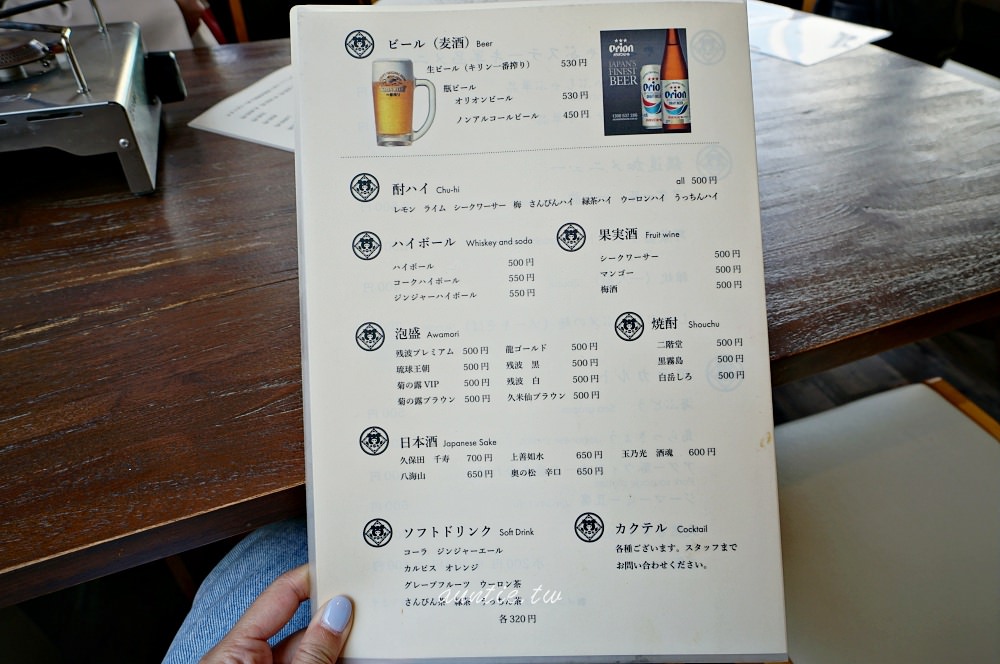 ビール（麦酒） Beer
生ビール（キリン一番搾り） 530円
瓶ビール
オリオンビール 530円
ノンアルコールビール 450円
Orion
JAPAN'S
FINEST
BEER
Orion
Orion
酎ハイ Chu-hi
all 500円
レモン ライム シークワーサー 梅 さんぴんハイ 緑茶ハイ ウーロンハイ うっちんハイ
ハイボール Whiskey and soda
ハイボール 500円
コークハイボール 550円
ジンジャーハイボール 550円
果実酒 Fruit wine
シークワーサー 500円
マンゴー 500円
梅酒 500円
泡盛 Awamori
残波プレミアム 500円 龍ゴールド 500円
琉球王朝 500円 残波 黒 500円
菊の露VIP 500円 残波 白 500円
菊の露ブラウン 500円 久米仙ブラウン 500円
焼酎 Shouchu
二階堂 500円
黒霧島 500円
白岳しろ 500円
日本酒 Japanese Sake
久保田 千寿 700円 上善如水 650円 玉乃光 酒魂 600円
八海山 650円 奥の松 辛口 650円
ソフトドリンク Soft Drink
コーラ ジンジャーエール
カルピス オレンジ
グレープフルーツ ウーロン茶
さんぴん茶 緑茶 うっちん茶
各320円
カクテル Cocktail
各種ございます。スタッフまで
お問い合わせください。
auntie.tw